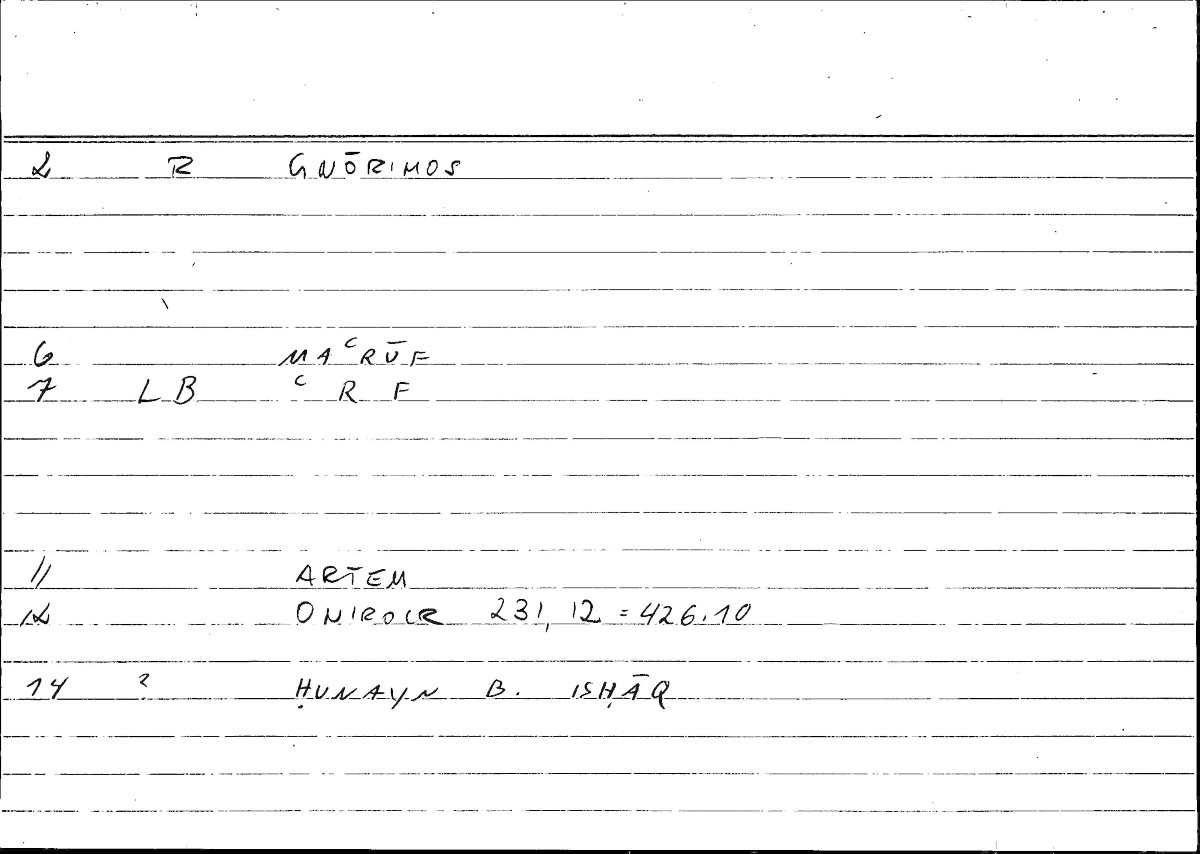 2 R GNŌRIMOS
6 MAᶜRŪF
7 LB ᶜ R F
11 ARTEM
12 ONIROCR 231, 12 = 426.10
14 ? ḤUNAYN B. ISḤĀQ